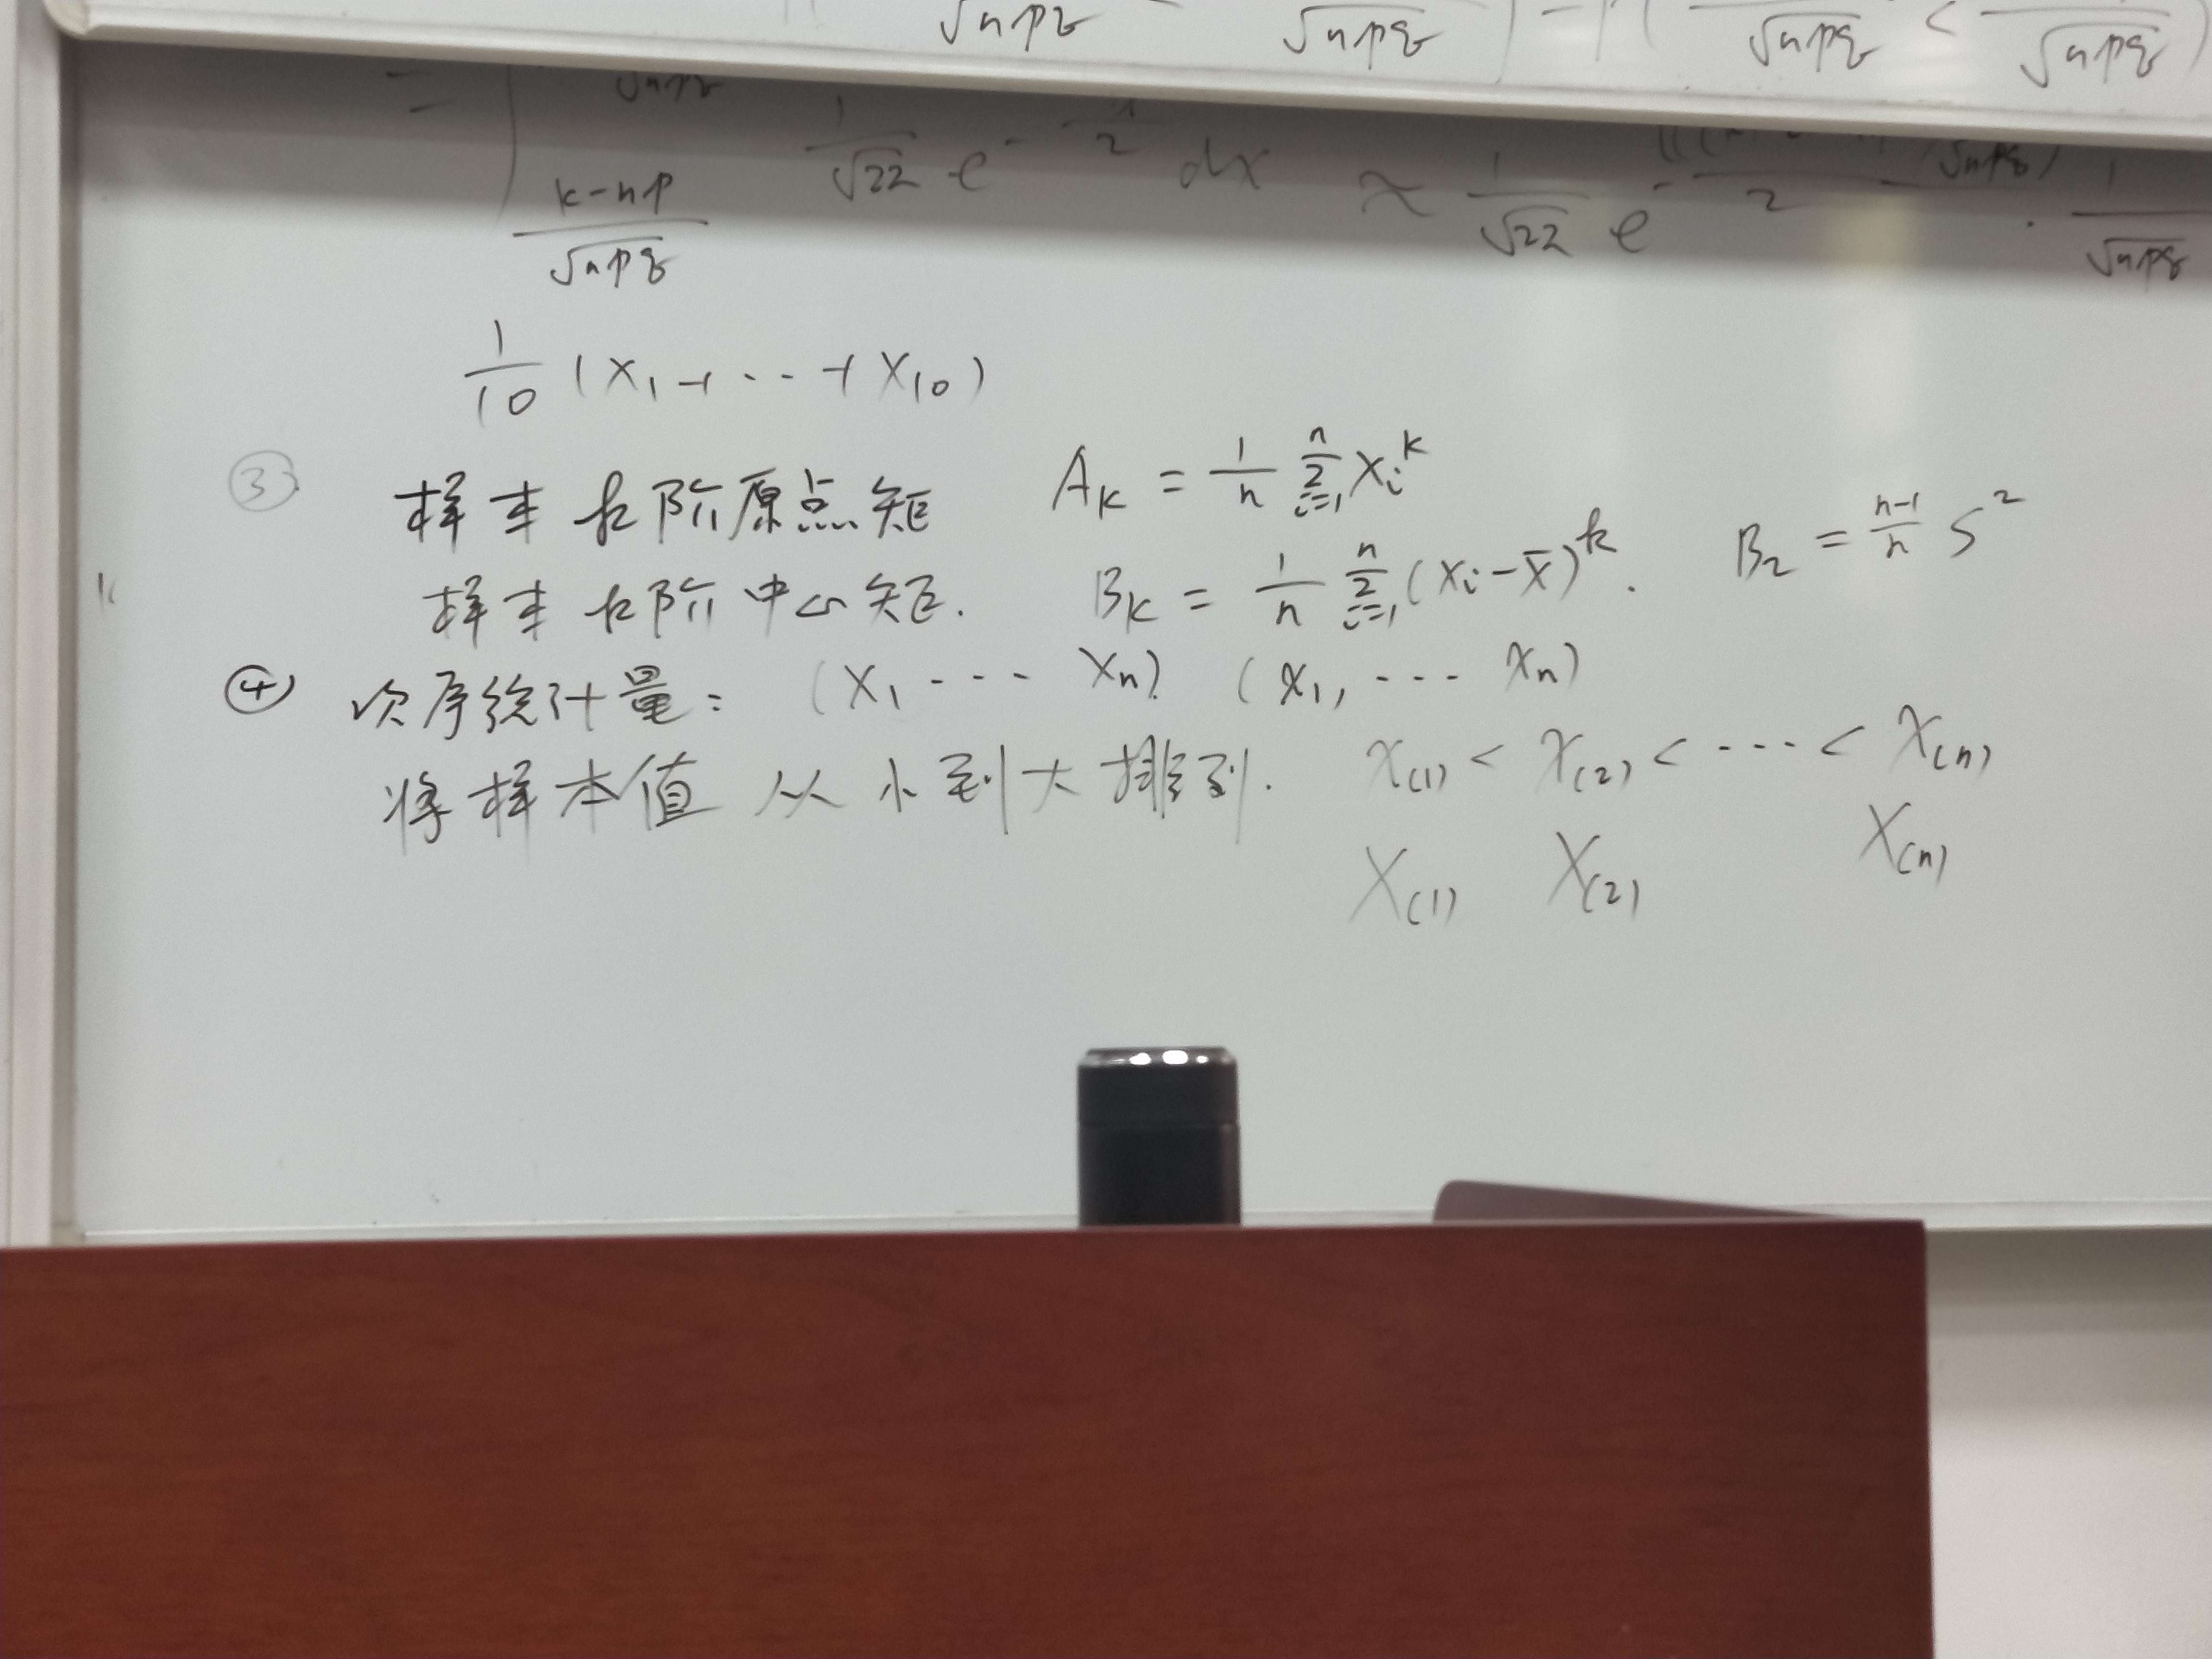 √npq √npq √npq < √npq )
= ∫ √npq 1/√2π e^-x/2 dx ≈ 1/√2π e^- /2 · 1/√npq
k-np/√npq
1/10 (X₁+···+X₁₀)
③ 样本k阶原点矩 Aₖ = 1/n Σᵢ₌₁ⁿ Xᵢᵏ
样本k阶中心矩. Bₖ = 1/n Σᵢ₌₁ⁿ (Xᵢ-X̄)ᵏ. B₂ = n-1/n S²
④ 次序统计量: (X₁ ··· Xₙ). (x₁, ··· xₙ)
将样本值 从小到大排列. x₍₁₎ < x₍₂₎ < ··· < x₍ₙ₎
X₍₁₎ X₍₂₎ X₍ₙ₎